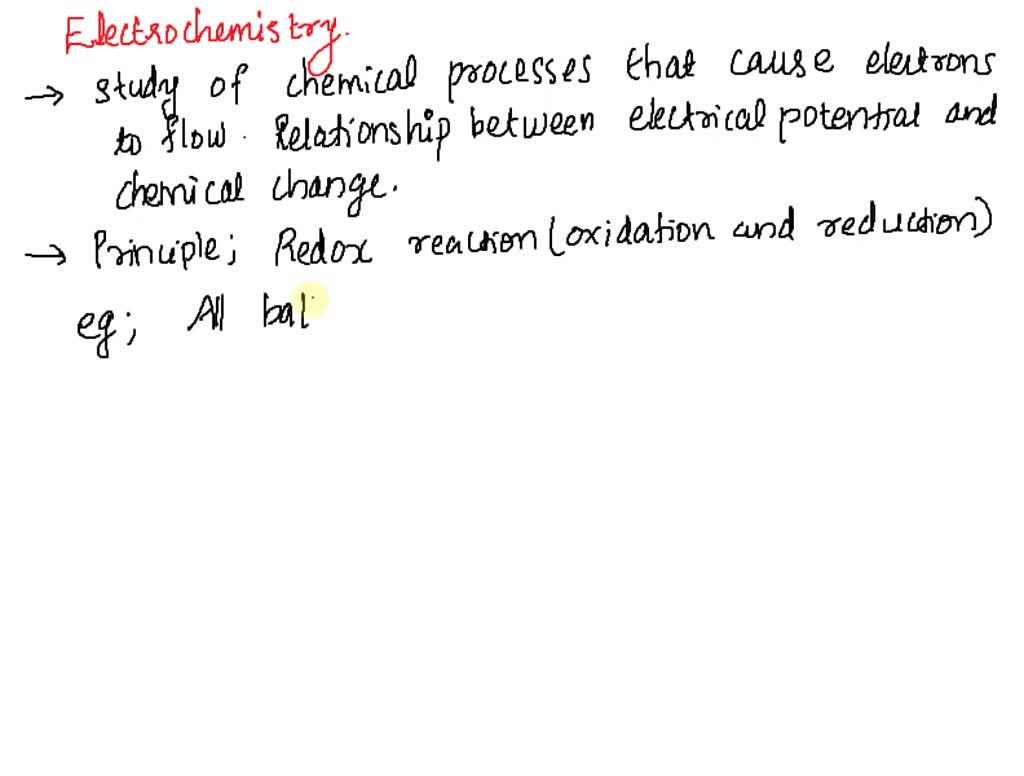 Electrochemistry.
→ study of chemical processes that cause electrons
to flow. Relationship between electrical potential and
chemical change.
→ Principle; Redox reaction (oxidation and reduction)
eg; All bat